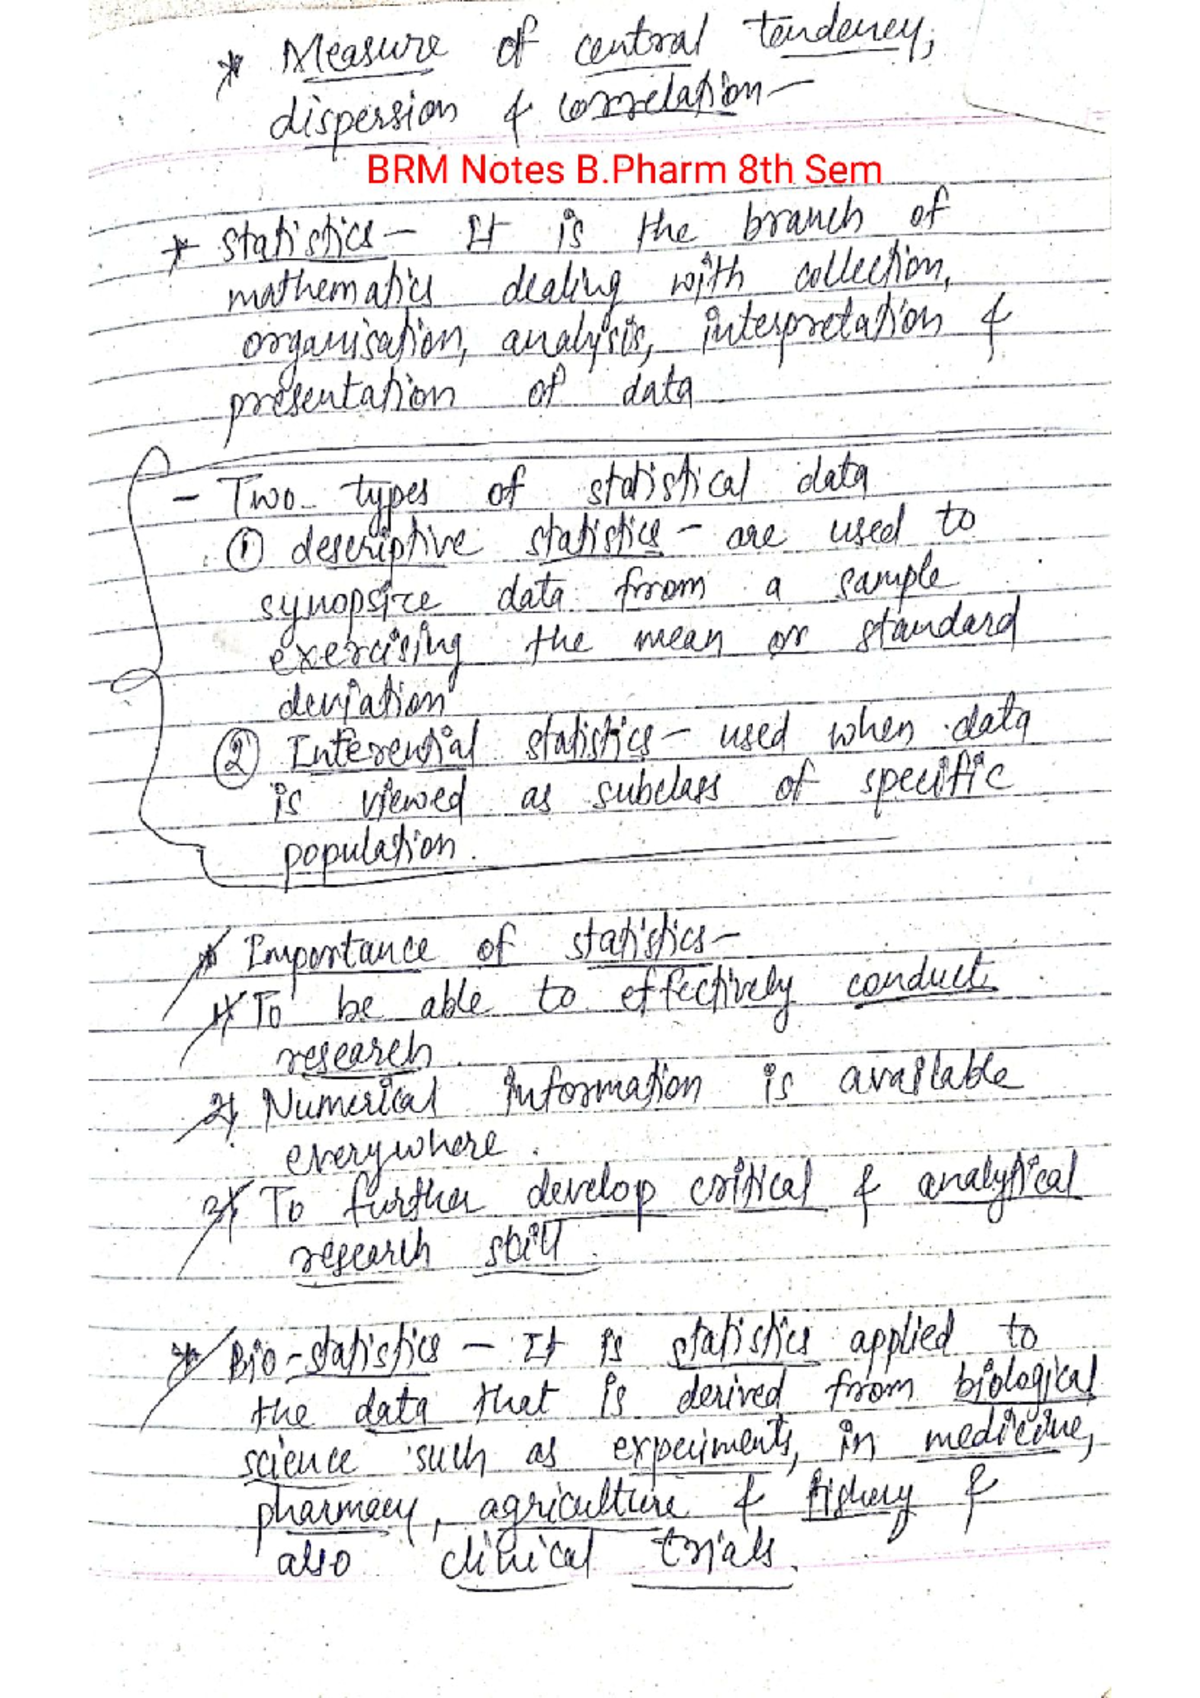 * Measure of central tendency,
dispersion & correlation -
BRM Notes B.Pharm 8th Sem
* Statistics - It is the branch of
mathematics dealing with collection,
organisation, analysis, interpretation &
presentation of data
- Two types of statistical data
① descriptive statistics - are used to
synopsize data from a sample
exercising the mean or standard
deviation
② Inferential statistics - used when data
is viewed as subclass of specific
population.
* Importance of statistics -
1) To be able to effectively conduct
research.
2) Numerical information is available
everywhere.
3) To further develop critical & analytical
research skill.
* Bio-statistics - It is statistics applied to
the data that is derived from biological
science such as experiments, in medicine,
pharmacy, agriculture & fishery &
also clinical trials.